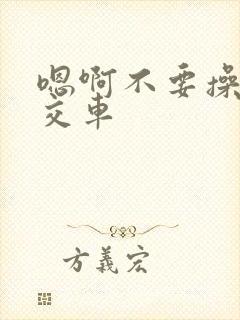 嗯啊不要操
交车
方義宏